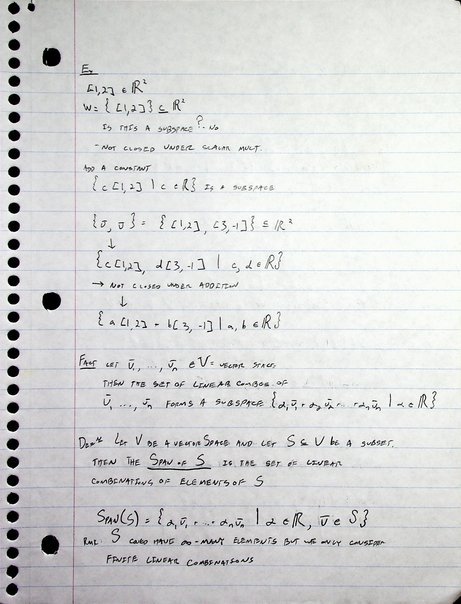 Ex
[1,2] ∈ ℝ²
W = { [1,2] } ⊆ ℝ²
IS THIS A SUBSPACE? NO
- NOT CLOSED UNDER SCALAR MULT.
ADD A CONSTANT
{ c[1,2] | c ∈ ℝ } IS A SUBSPACE
{ū, v̄} = { [1,2], [3,-1] } ⊆ ℝ²
↓
{ c[1,2], d[3,-1] | c, d ∈ ℝ }
→ NOT CLOSED UNDER ADDITION
↓
{ a[1,2] + b[3,-1] | a, b ∈ ℝ }
FACT LET v̄₁, ..., v̄ₙ ∈ V = VECTOR SPACE
THEN THE SET OF LINEAR COMBOS OF
v̄₁, ..., v̄ₙ FORMS A SUBSPACE {α₁v̄₁ + α₂v̄₂ + ... + αₙv̄ₙ | α ∈ ℝ}
LET V BE A VECTOR SPACE AND LET S ⊆ V BE A SUBSET.
THEN THE SPAN OF S IS THE SET OF LINEAR
COMBINATIONS OF ELEMENTS OF S
SPAN(S) = {α₁v̄₁ + ... αₙv̄ₙ | α ∈ ℝ, v̄ ∈ S}
RMK: S COULD HAVE ∞-MANY ELEMENTS BUT WE ONLY CONSIDER
FINITE LINEAR COMBINATIONS